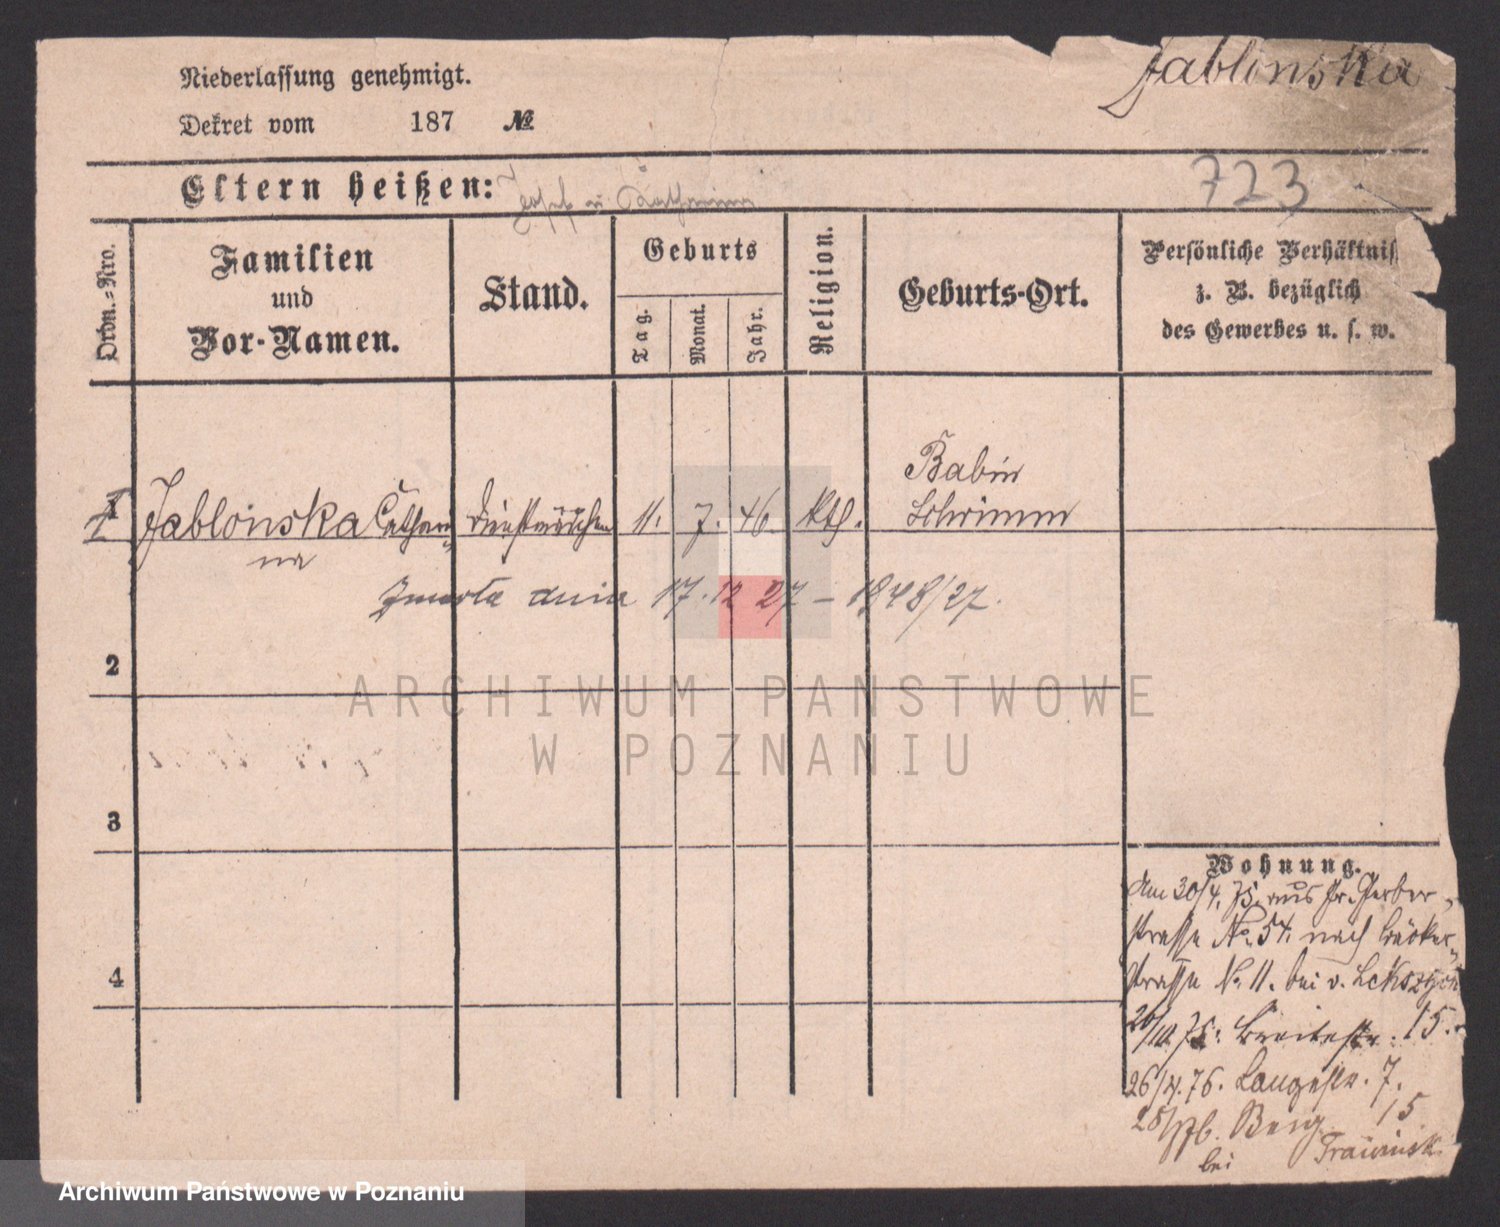 Jablonska
Niederlassung genehmigt.
Dekret vom 187 №
723
Eltern heißen: Josef u Katharina
Ordn.-Nro.
Familien
und
Vor-Namen.
Stand.
Geburts
Tag.
Monat.
Jahr.
Religion.
Geburts-Ort.
Persönliche Verhältniss
z. B. bezüglich
des Gewerbes u. s. w.
Babin
1 Jablonska Cathari Dienstmädchen 11. 7. 46. kth. Schrimm
na
Zmarła dnia 17.12 27 – 1848/27.
2
ARCHIWUM PAŃSTWOWE
W POZNANIU
3
Wohnung.
Am 30/4. 75. aus Gr. Gerber
strasse No. 54. nach Bäcker
strasse No 11. bei v.
20/10. 75. Breitestr. 15.
4
26/4. 76. Langestr. 7.
Berg 15
bei
Archiwum Państwowe w Poznaniu